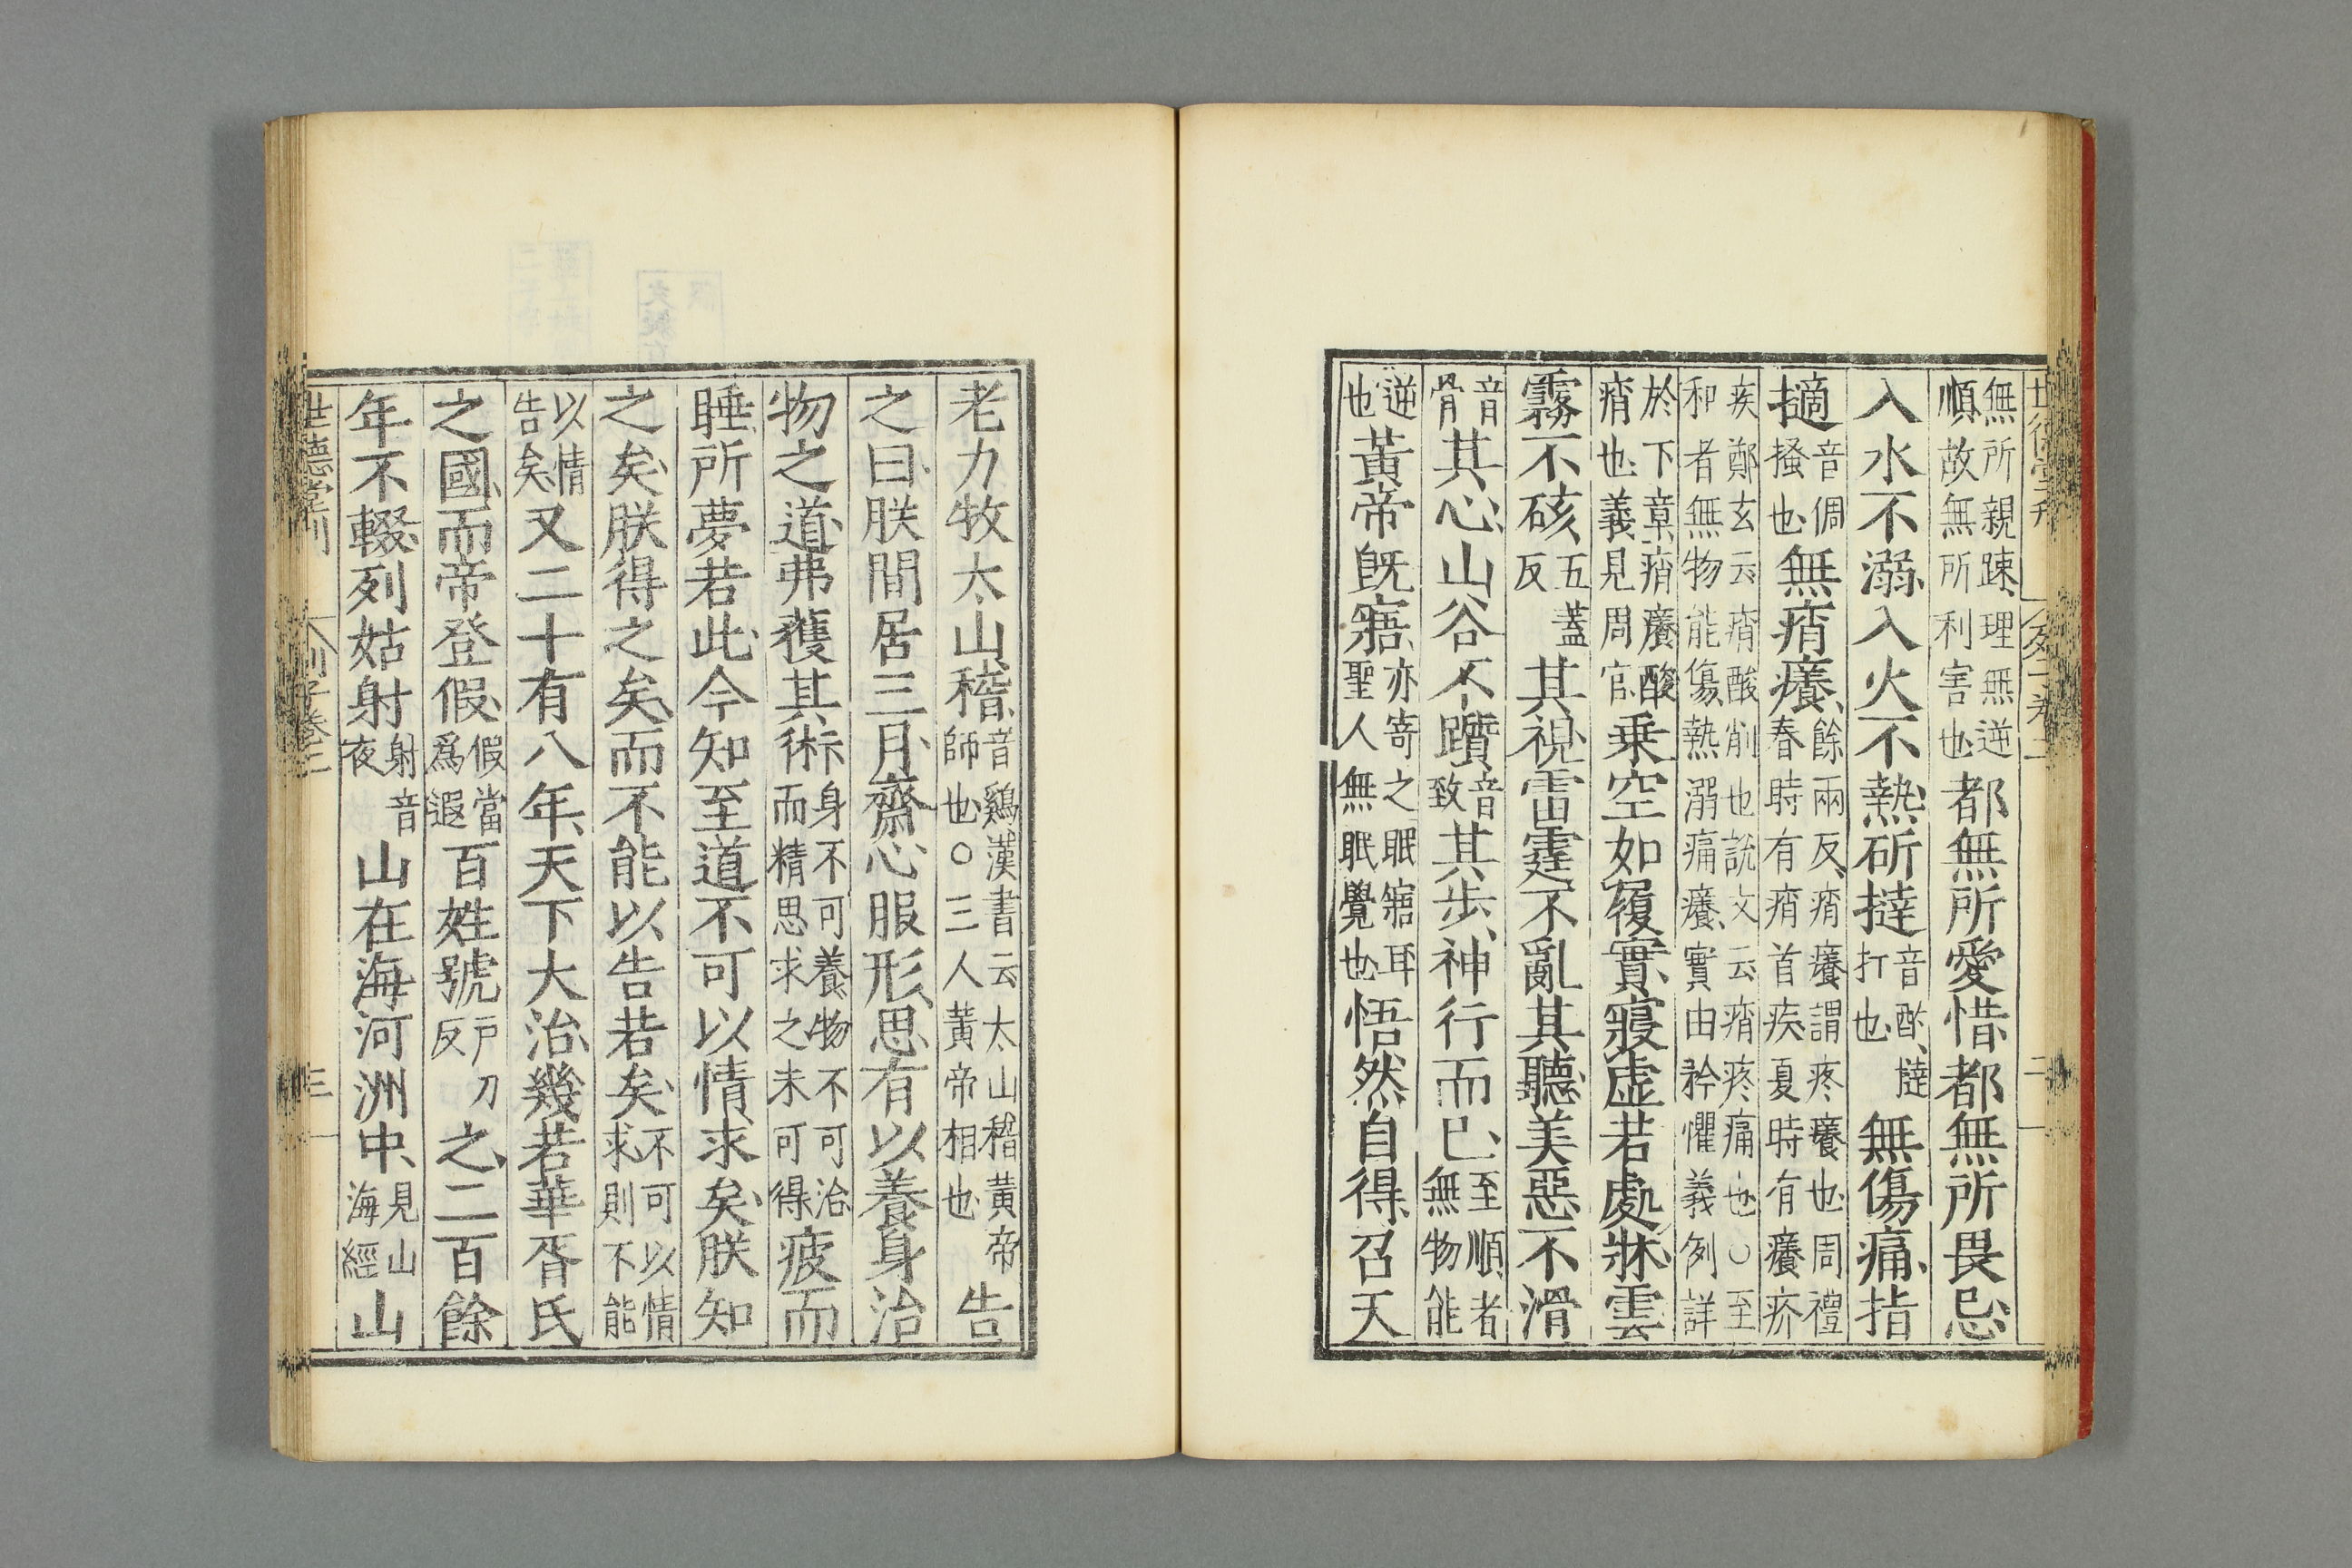 世德堂刊 列子卷二 二
無所親踈理無逆順故無所利害也都無所愛惜都無所畏忌
入水不溺入火不熱斫撻音酌撻打也無傷痛指
擿音倜搔也無痟癢餘兩反痟癢謂疼癢也周禮春時有痟首疾夏時有癢疥
疾鄭玄云痟酸削也說文云痟疼痛也○至和者無物能傷熱溺痛癢實由矜懼義例詳
於下章痟癢酸痟也義見周官乗空如履實寢虛若處牀雲
霧不硋五蓋反其視雷霆不亂其聽美惡不滑
音骨其心山谷不躓音致其步神行而已至順者無物能
逆也黃帝旣寤亦寄之眠寤耳聖人無眠覺也悟然自得召天
老力牧太山稽音雞漢書云太山稽黃帝師也○三人黃帝相也告
之曰朕間居三月齋心服形思有以養身治
物之道弗獲其術身不可養物不可治而精思求之未可得疲而
睡所夢若此今知至道不可以情求矣朕知
之矣朕得之矣而不能以告若矣不可以情求則不能
以情告矣又二十有八年天下大治幾若華胥氏
之國而帝登假假當爲遐百姓號戸刀反之二百餘
年不輟列姑射射音夜山在海河洲中見山海經山
世德堂刊 列子卷二 三